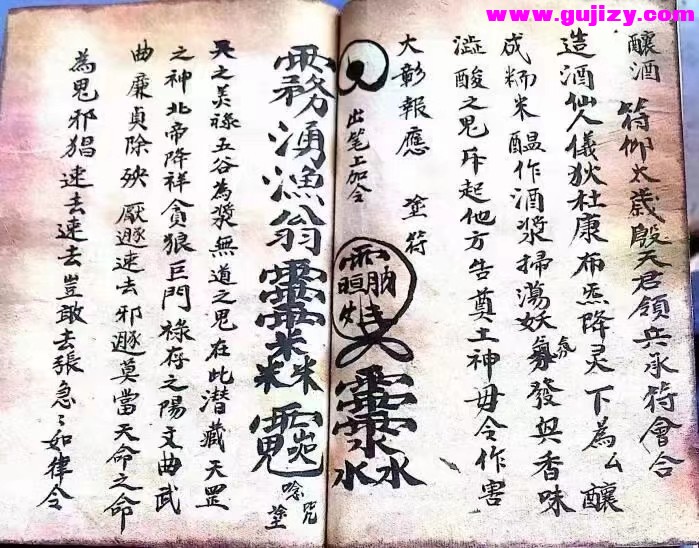 www.gujizy.com
釀酒 符仰太歲殷天君領兵承符會合
造酒仙人儀狄杜康布炁降灵下為厶釀
成粫米醖作酒漿掃蕩妖氣氛發與香味
澁酸之鬼斥起他方告奠土神毋令作害
大彰報應 塗符
出笔上加令
務湧漁翁
唸咒塗
天之美祿五谷為漿無道之鬼在此潜藏天罡
之神北帝降祥貪狼巨門祿存之陽文曲武
曲廉貞除殃厭遯速去邪遯莫當天命之命
為鬼邪猖速去速去豈敢去張急〻如律令